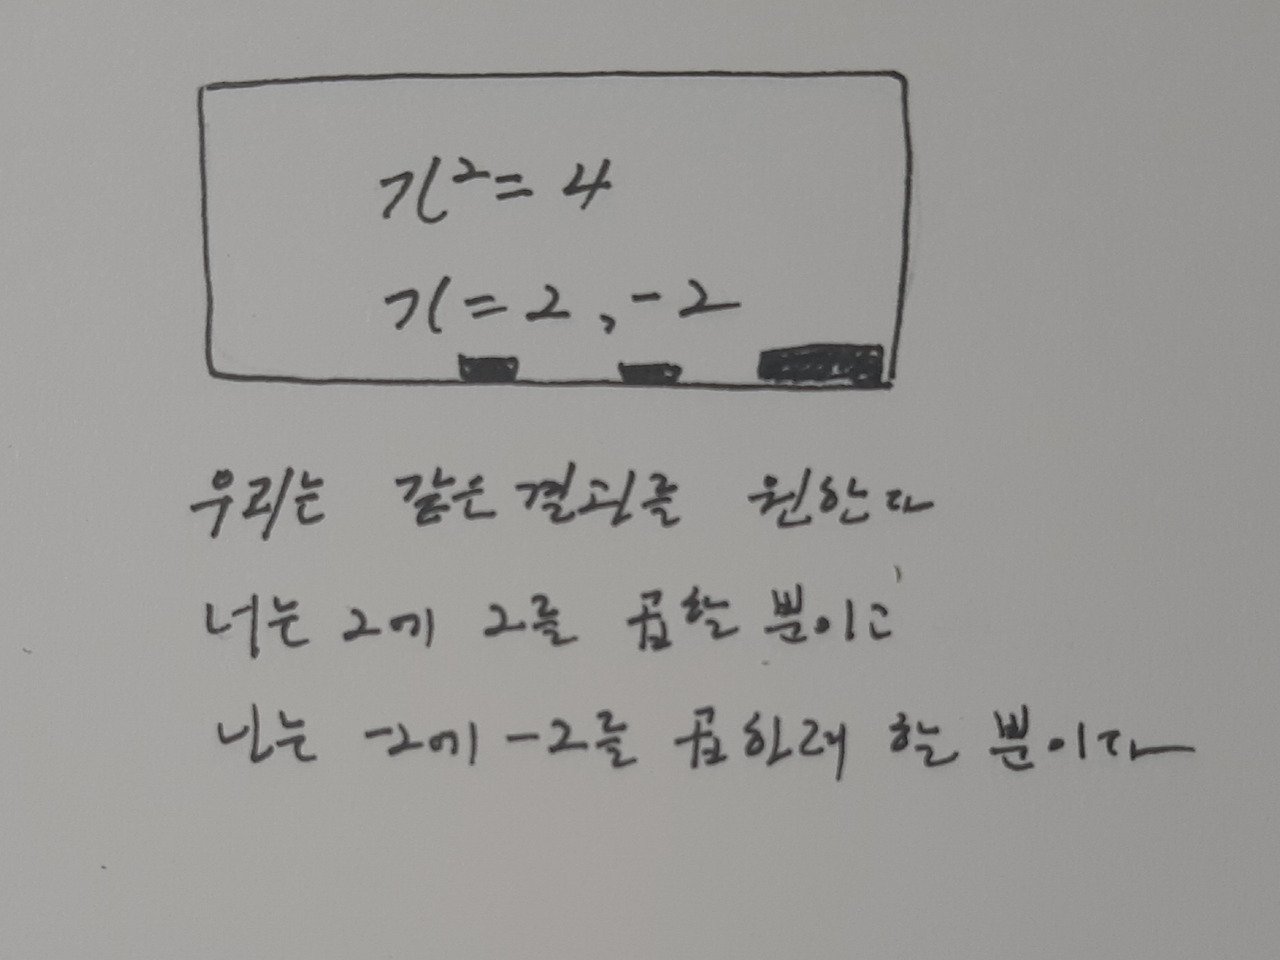 x² = 4
x = 2, -2
우리는 같은 결과를 원한다
너는 2에 2를 곱할 뿐이고
나는 -2에 -2를 곱하려 할 뿐이다